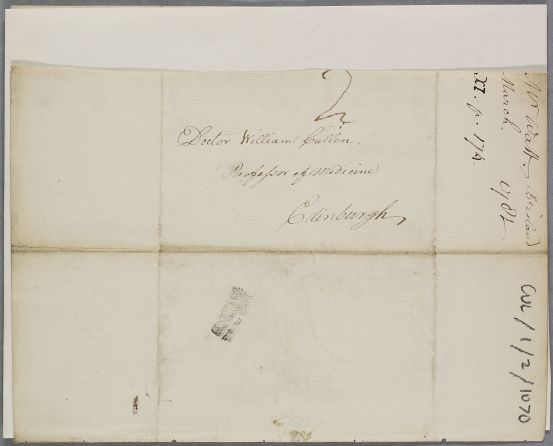 2
Doctor William Cullen,
Professor of Medicine
Edinburgh,
Mr Watt
March. 1781
XI. p. 174.
CUL/1/2/1070